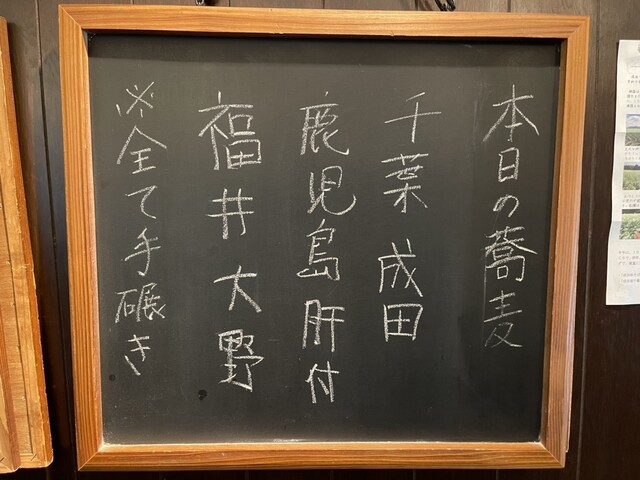 本日の蕎麦
千葉 成田
鹿児島 肝付
福井 大野
※全て手碾き